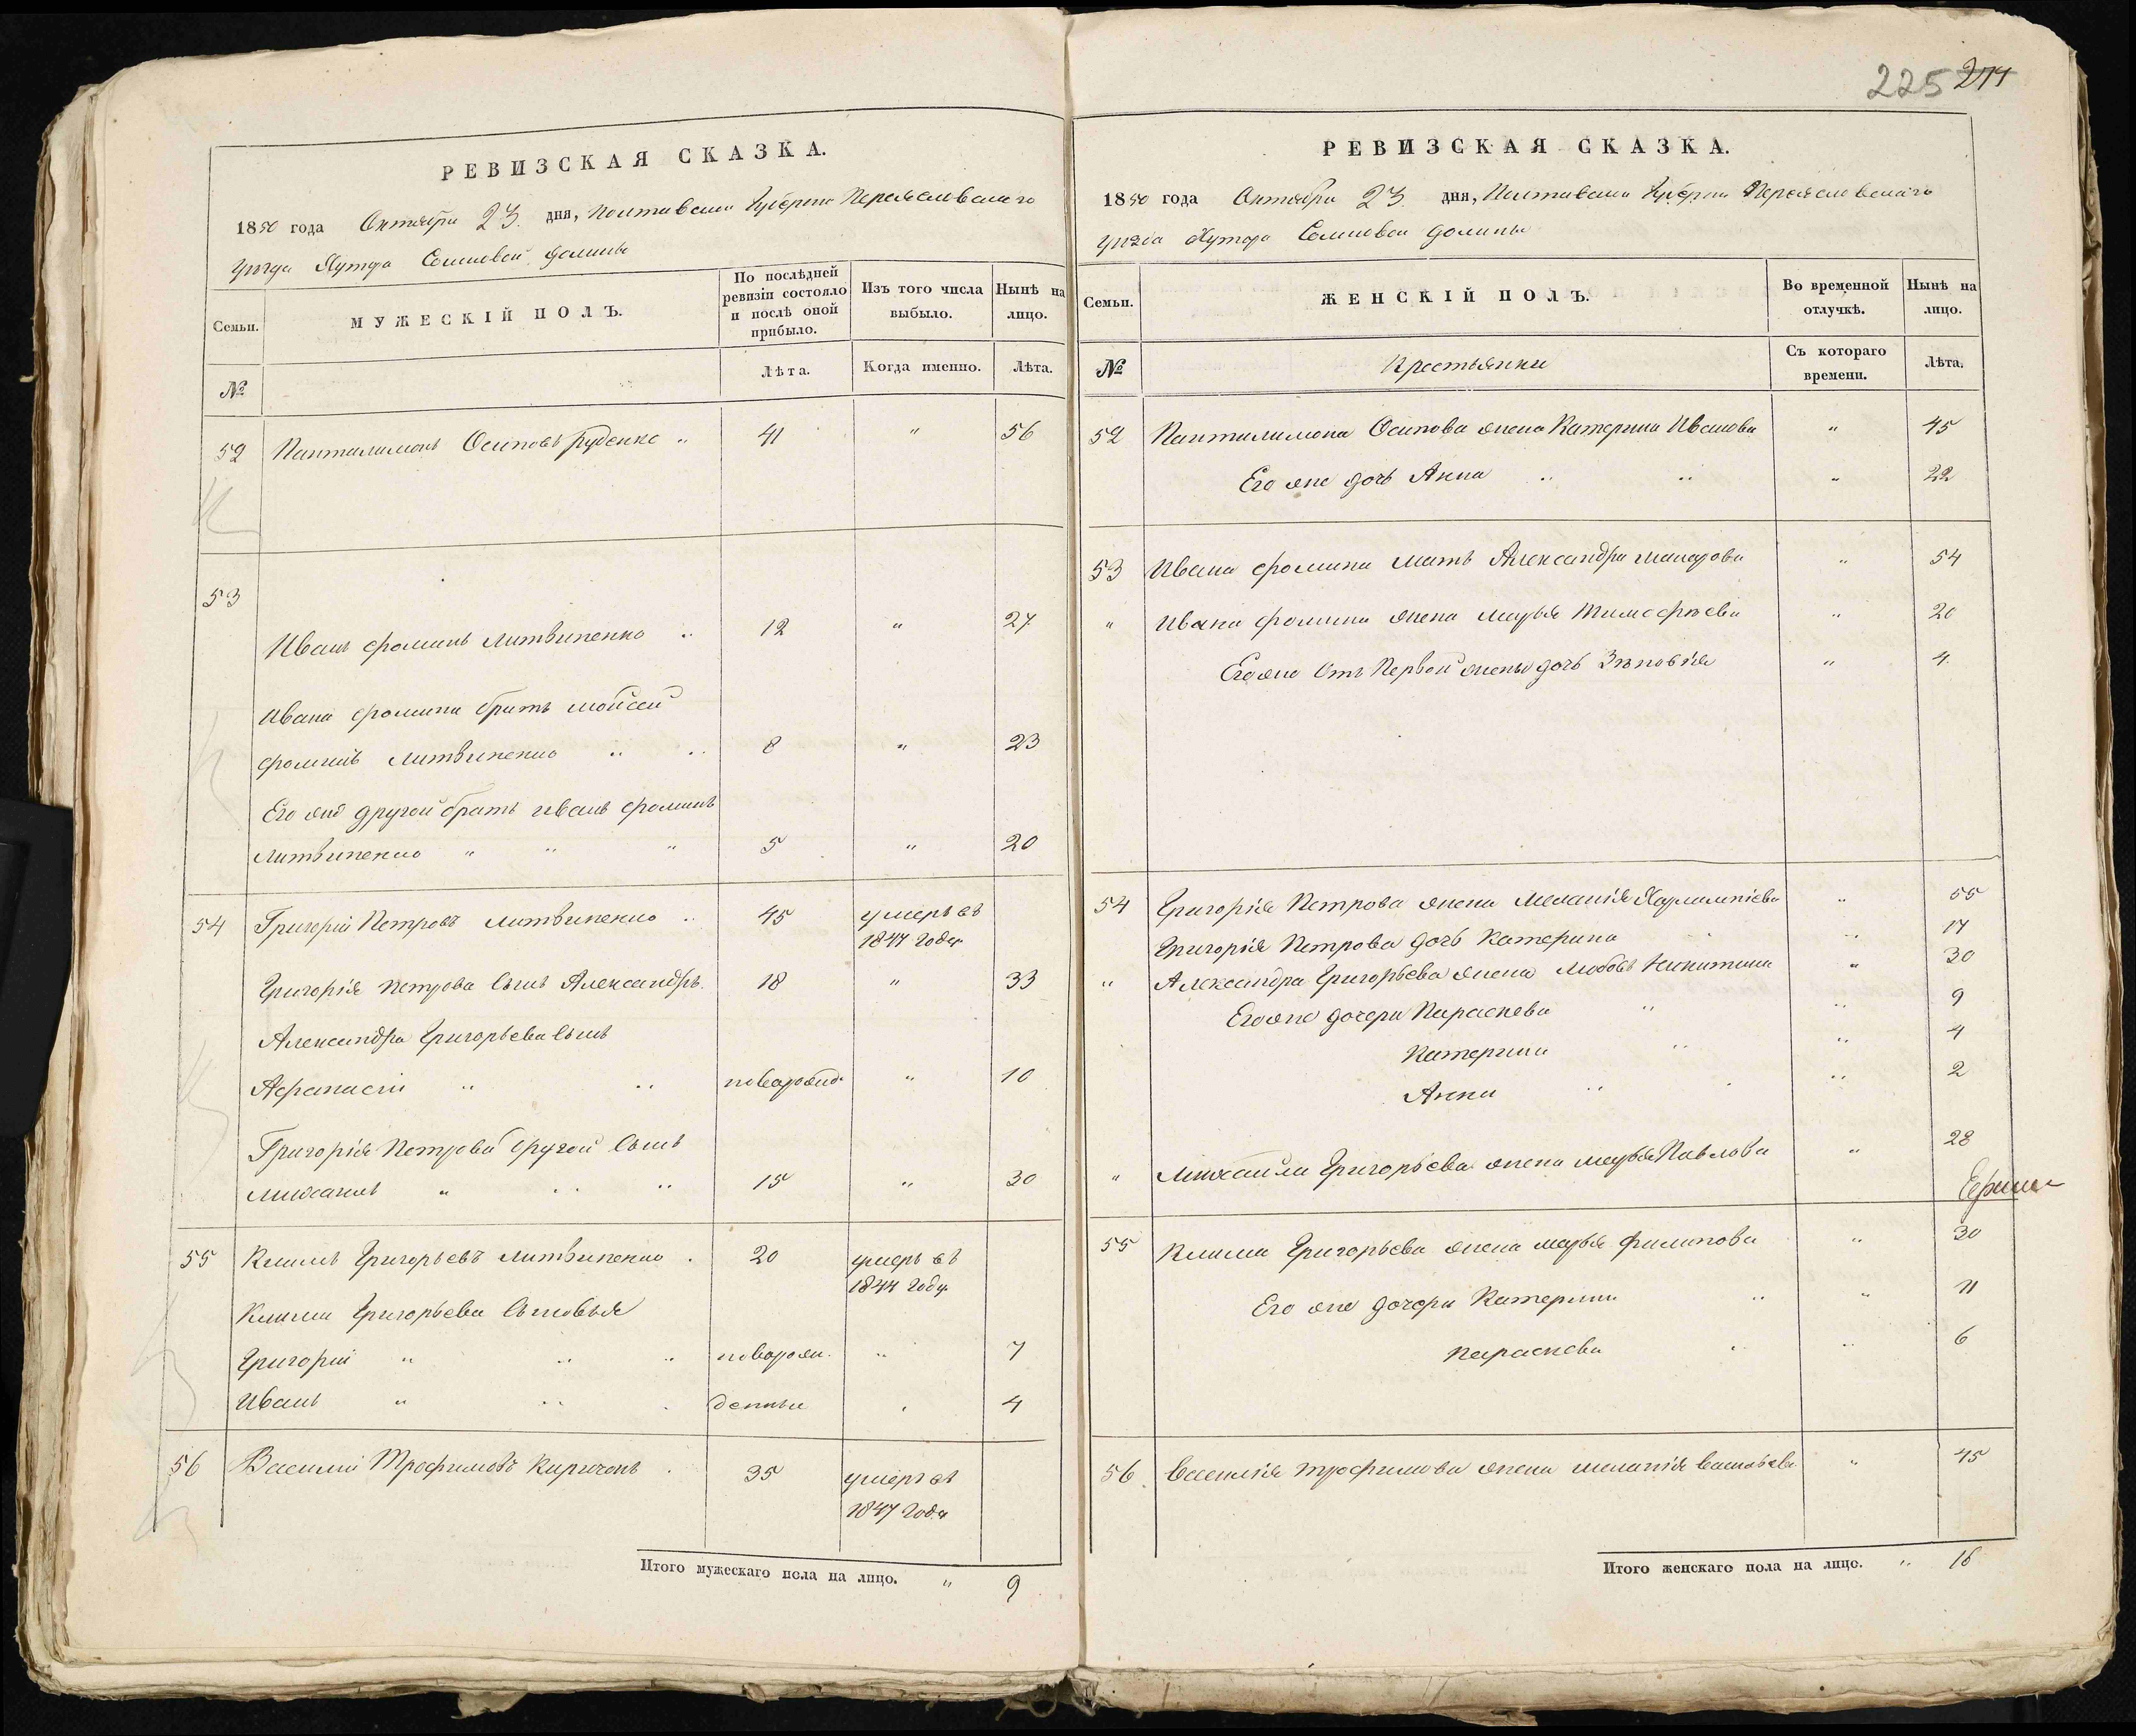 225 274
РЕВИЗСКАЯ СКАЗКА.
1850 года Октября 23 дня, Полтавской Губернии Переяславскаго
уезда Хутора Сомковой долины
Семьи.
МУЖЕСКІЙ ПОЛЪ.
По послѣдней
ревизіи состояло
и послѣ оной
прибыло.
Изъ того числа
выбыло.
Нынѣ на
лицо.
№
Лѣта.
Когда именно.
Лѣта.
52 Пантилимонъ Осиповъ Руденко „ 41 „ 56
53
Иванъ Фоминъ Литвиненко „ 12 „ 27
Ивана Фомина братъ Мойсей
Фоминъ Литвиненко „ „ 8 „ 23
Его же другой братъ Иванъ Фоминъ
Литвиненко „ „ „ 5 „ 20
54 Григорій Петровъ Литвиненко „ 45 умеръ въ
1847 году
Григорія Петрова Сынъ Александръ. 18 „ 33
Александра Григорьева Сынъ
Афанасій „ „ новорожд. „ 10
Григорія Петрова другой Сынъ
Михаилъ „ „ „ 15 „ 30
55 Климъ Григорьевъ Литвиненко 20 умеръ въ
1844 году
Клима Григорьева Сыновья
Григорій „ „ „ новорож. „ 7
Иванъ „ „ денные „ 4
56 Василий Трофимовъ Киричокъ 35 умеръ въ
1847 году
Итого мужескаго пола на лицо. „ 9
РЕВИЗСКАЯ СКАЗКА.
1850 года Октября 23 дня, Полтавской Губернии Переяславскаго
уезда Хутора Сомковой долины
Семьи.
ЖЕНСКІЙ ПОЛЪ.
Во временной
отлучкѣ.
Нынѣ на
лицо.
№
Крестьянки
Съ котораго
времени.
Лѣта.
52 Пантилимона Осипова жена Катерина Иванова „ 45
Его же дочь Анна „ „ „ 22
53 Ивана Фомина мать Александра Макарова „ 54
„ Ивана Фомина жена Марья Тимофѣева „ 20
Его же Отъ Первой жены дочь Зѣновія „ 4
54 Григорія Петрова жена Меланія Харлампіева „ 55
Григорія Петрова дочь Катерина „ 17
„ Александра Григорьева жена Любовь Никитина „ 30
Его же дочери Параскева „ „ 9
Катерина „ „ 4
Анна „ „ 2
„ Михаила Григорьева жена Марья Павлова „ 28
55 Клима Григорьева жена Марья Филипова „ 30
Его же дочери Катерина „ „ 11
Параскева „ „ 6
56 Василія Трофимова жена Меланія „ 45
Итого женскаго пола на лицо. „ 16